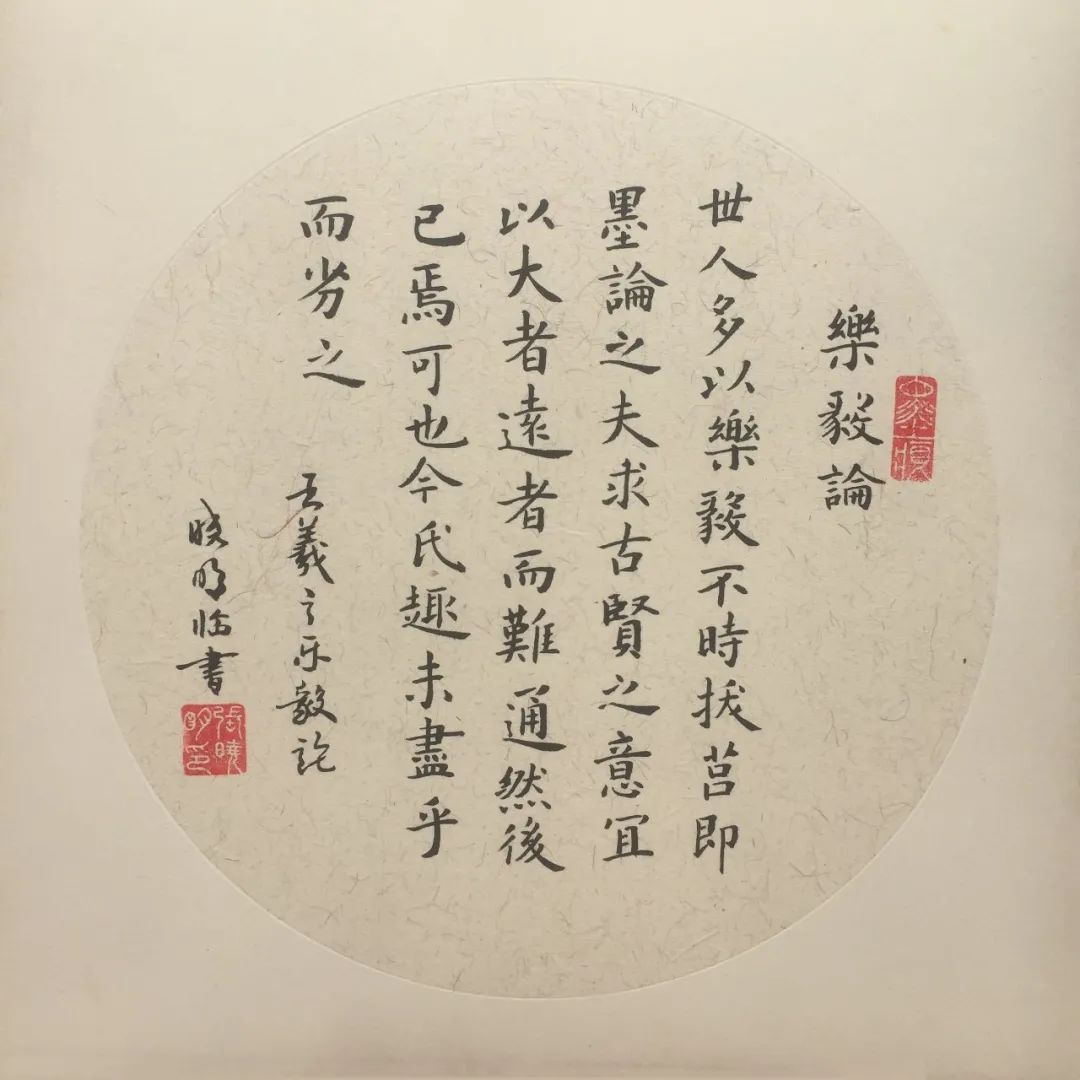 樂毅論
世人多以樂毅不時拔莒即
墨論之夫求古賢之意宜
以大者遠者而難通然後
已焉可也今氏趣未盡乎
而劣之
王羲之乐毅论
晓明临書
張曉明印